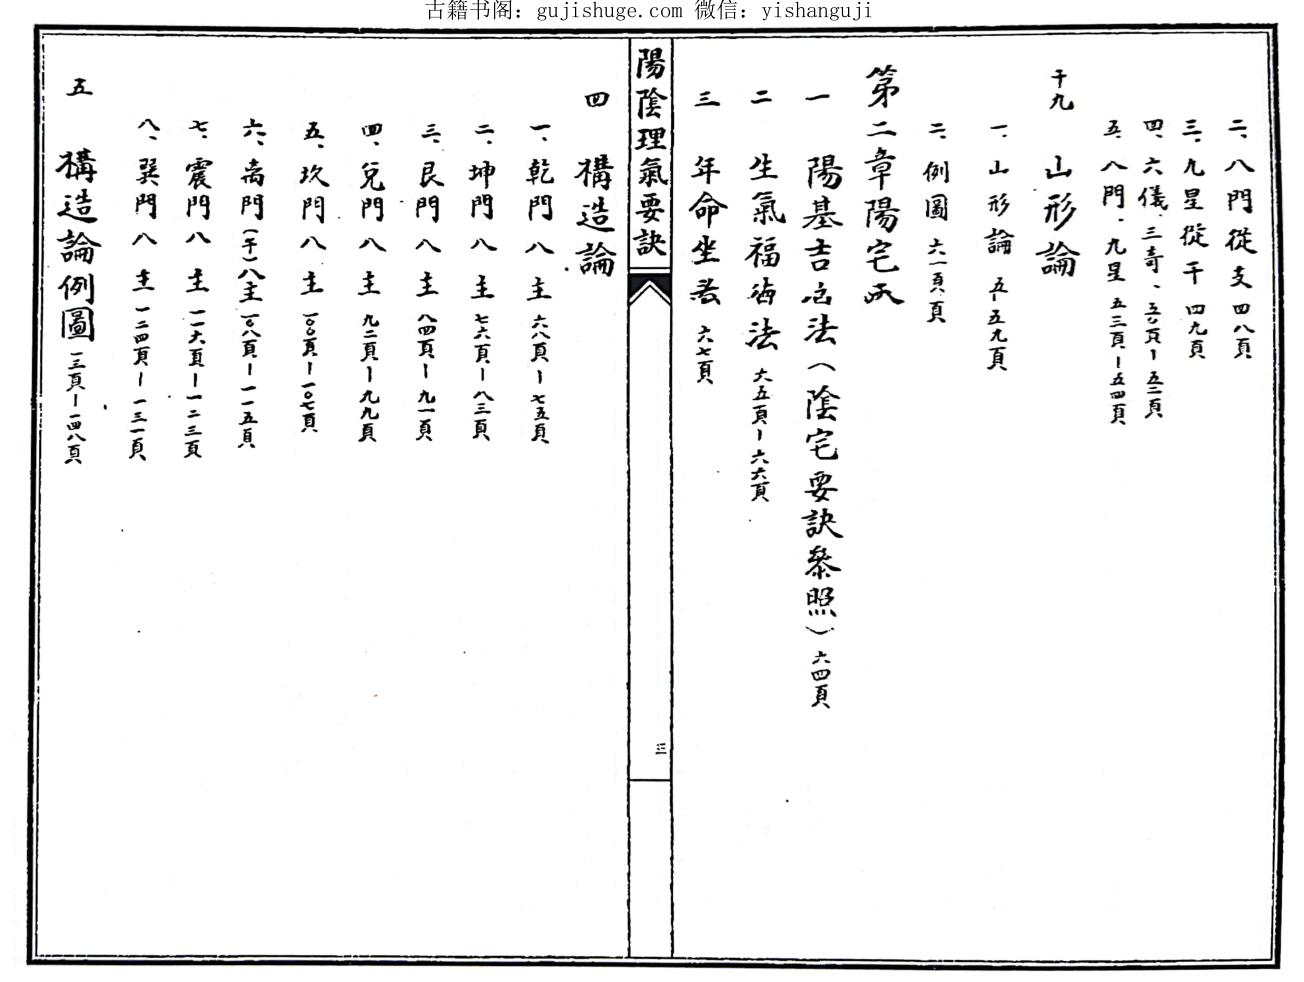 古籍书阁：gujishuge.com 微信：yishanguji
二、八門從支 四八頁
三、九星從干 四九頁
四、六儀、三奇、五〇頁－五二頁
五、八門、九星 五三頁－五四頁
十九 山形論
一、山形論 五－五九頁
二、例圖 六一頁頁
第二章陽宅
一 陽基吉凶法（陰宅要訣參照）六四頁
二 生氣福德法 六五頁－六六頁
三 年命坐 六七頁
陽陰理氣要訣
三
四 構造論
一、乾門八主 六八頁－七五頁
二、坤門八主 七六頁－八三頁
三、艮門八主 八四頁－九一頁
四、兌門八主 九二頁－九九頁
五、坎門八主 一〇〇頁－一〇七頁
六、离門（午）八主 一〇八頁－一一五頁
七、震門八主 一一六頁－一二三頁
八、巽門八主 一二四頁－一三一頁
五 構造論例圖 一三頁－一四八頁